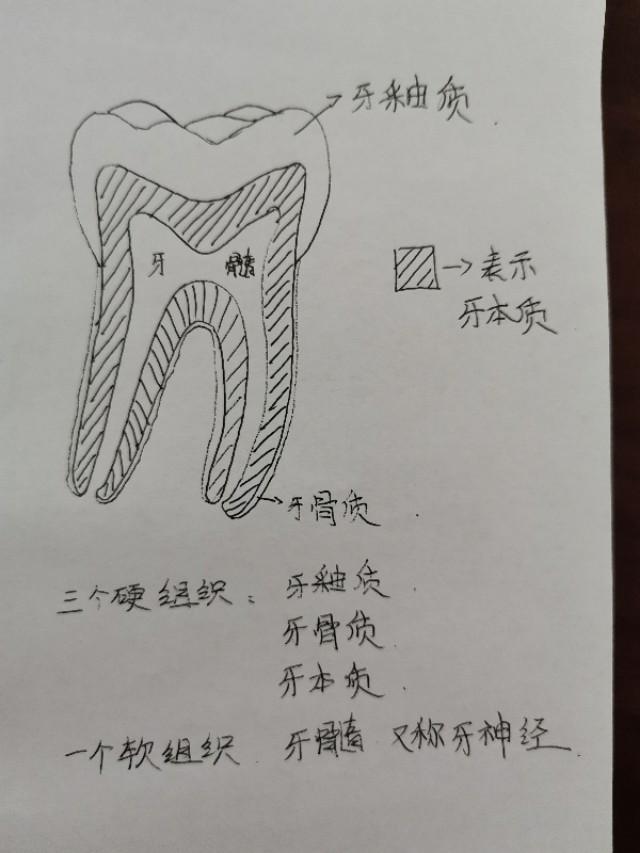 牙釉质
牙 髓
→表示
牙本质
牙骨质
三个硬组织: 牙釉质
牙骨质
牙本质
一个软组织 牙髓 又称牙神经